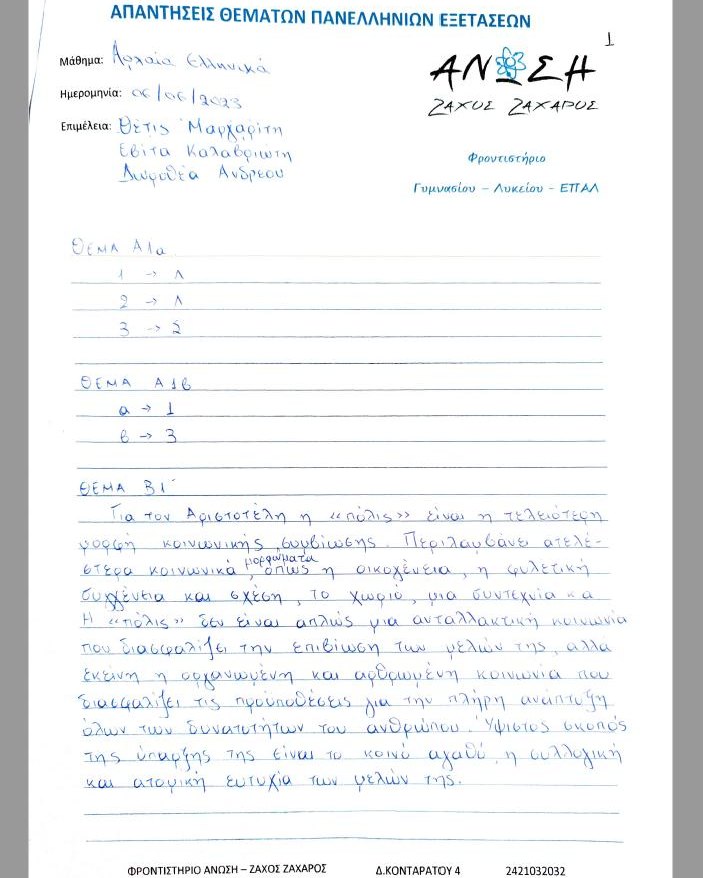 ΑΠΑΝΤΗΣΕΙΣ ΘΕΜΑΤΩΝ ΠΑΝΕΛΛΗΝΙΩΝ ΕΞΕΤΑΣΕΩΝ
1
Μάθημα: Αρχαία Ελληνικά
Ημερομηνία: 06/06/2023
Επιμέλεια: Θέτις Μαργαρίτη
Εβίτα Καλαβριώτη
Δωροθέα Ανδρεου
ΑΝΩΣΗ
ΖΑΧΟΣ ΖΑΧΑΡΟΣ
Φροντιστήριο
Γυμνασίου – Λυκείου - ΕΠΑΛ
ΘΕΜΑ Α1α
1 → Λ
2 → Λ
3 → Σ
ΘΕΜΑ Α1β
α → 1
β → 3
ΘΕΜΑ Β1
Για τον Αριστοτέλη η «πόλις» είναι η τελειότερη
μορφή κοινωνικής συμβίωσης. Περιλαμβάνει ατελέ-
στερα κοινωνικά μορφώματα, όπως η οικογένεια, η φυλετική
συγγένεια και σχέση, το χωριό, μια συντεχνία κ.α
Η «πόλις» δεν είναι απλώς μια ανταλλακτική κοινωνία
που διασφαλίζει την επιβίωση των μελών της, αλλά
εκείνη η οργανωμένη και αρθρωμένη κοινωνία που
διασφαλίζει τις προϋποθέσεις για την πλήρη ανάπτυξη
όλων των δυνατοτήτων του ανθρώπου. Ύψιστος σκοπός
της ύπαρξης της είναι το κοινό αγαθό, η συλλογική
και ατομική ευτυχία των μελών της.
ΦΡΟΝΤΙΣΤΗΡΙΟ ΑΝΩΣΗ – ΖΑΧΟΣ ΖΑΧΑΡΟΣ Δ.ΚΟΝΤΑΡΑΤΟΥ 4 2421032032